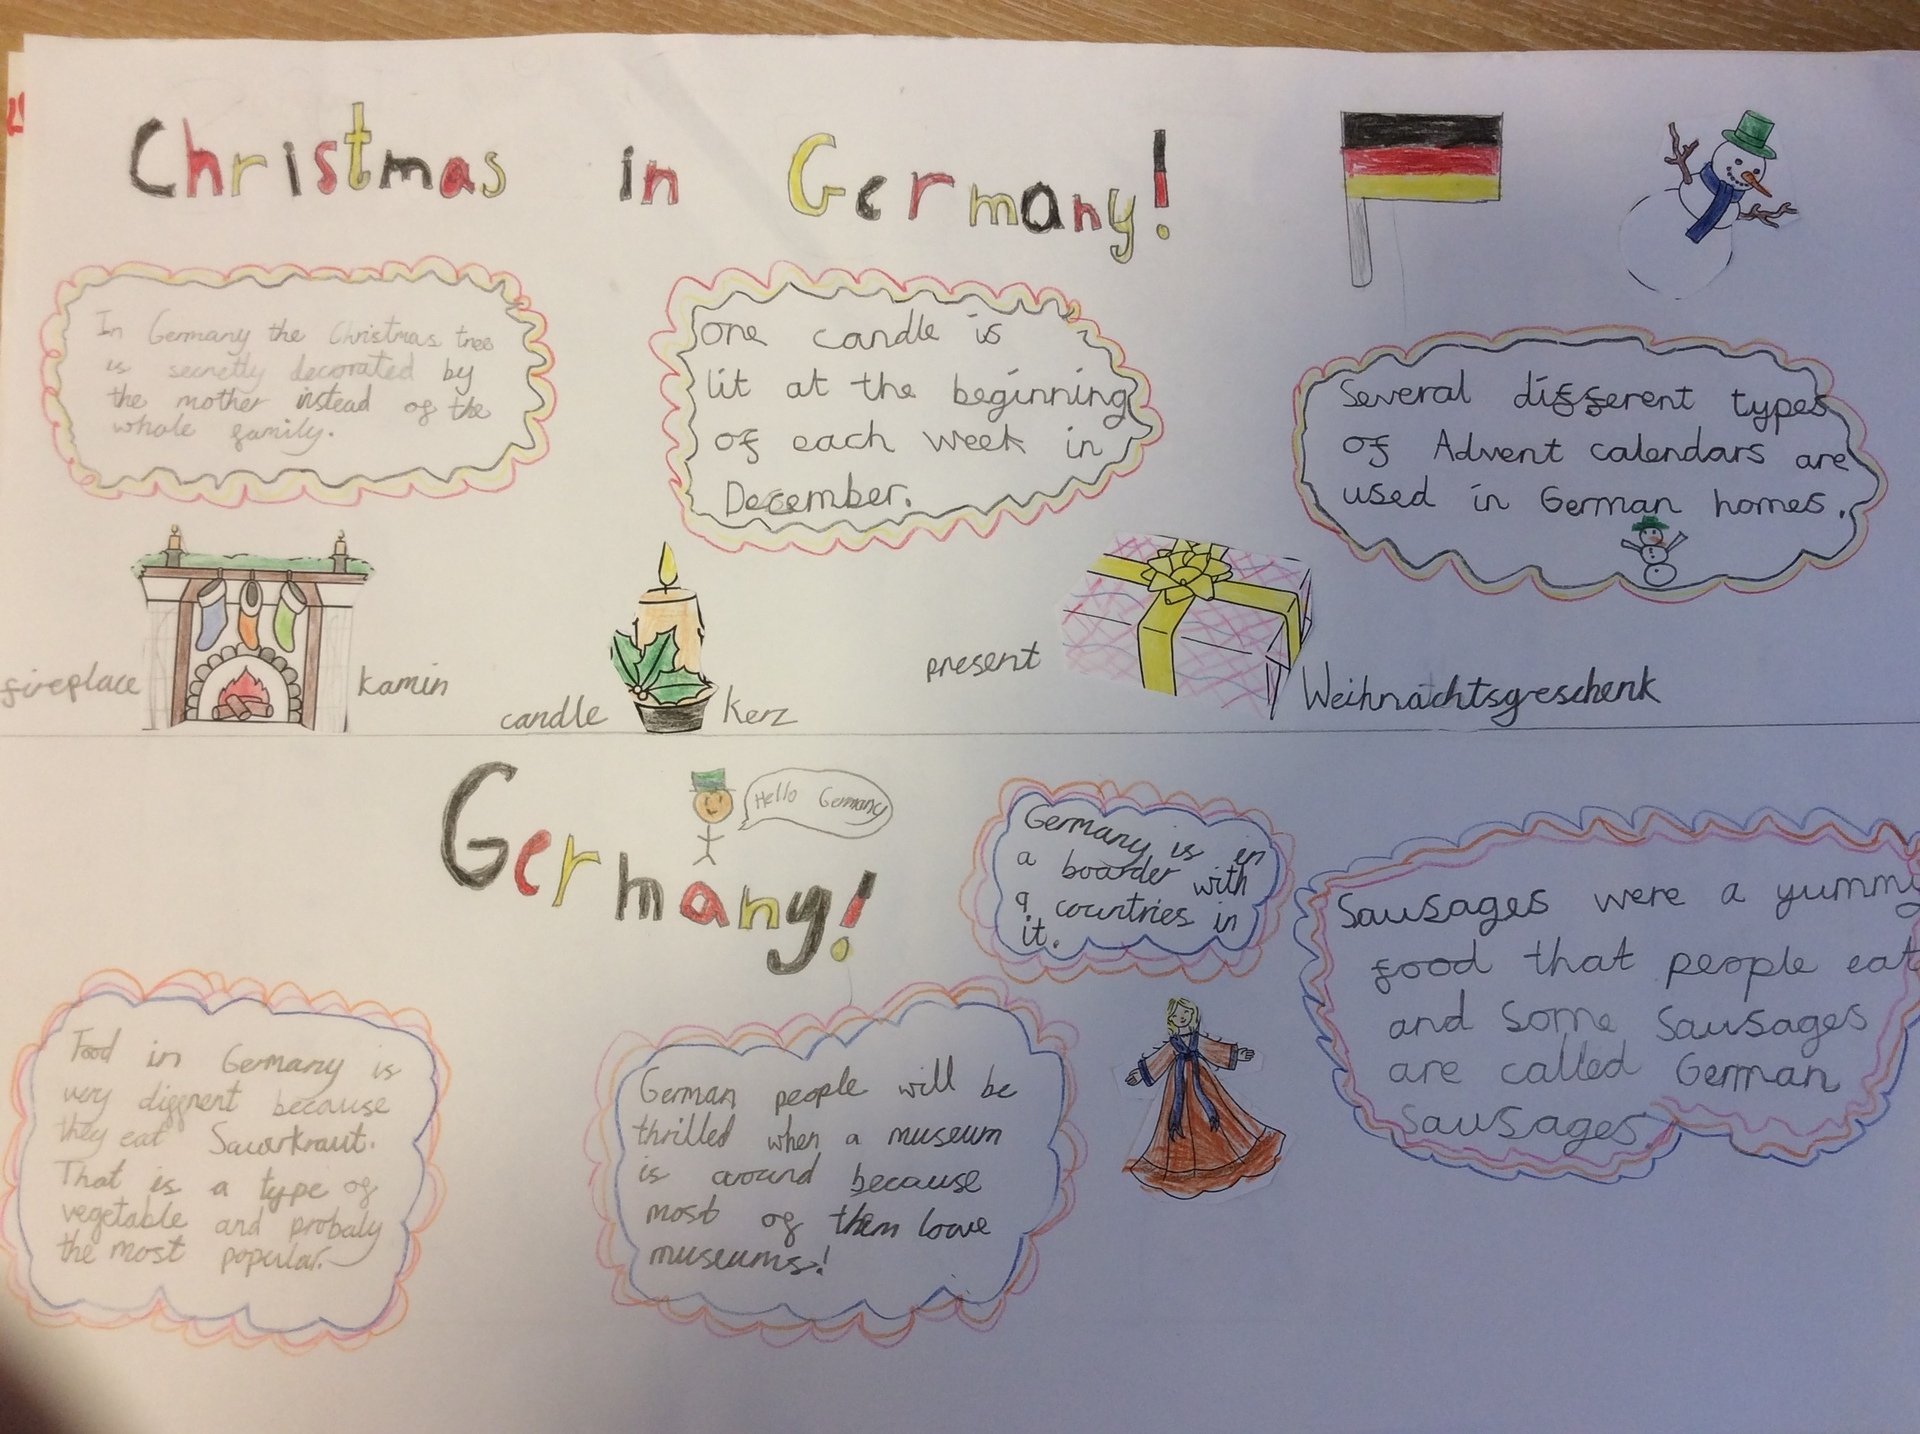 Christmas in Germany!
In Germany the Christmas tree
is secretly decorated by
the mother instead of the
whole family.
one candle is
lit at the beginning
of each week in
December.
Several different types
of Advent calendars are
used in German homes.
fireplace
kamin
candle
kerz
present
Weihnachtsgeschenk
Germany!
Hello Germany
Germany is in
a boarder with
9 countries in
it.
Sausages were a yummy
food that people eat
and some sausages
are called German
sausages
Food in Germany is
very diffrent because
they eat Sauerkraut.
That is a type of
vegetable and probaly
the most popular.
German people will be
thrilled when a museum
is around because
most of them loove
museums!